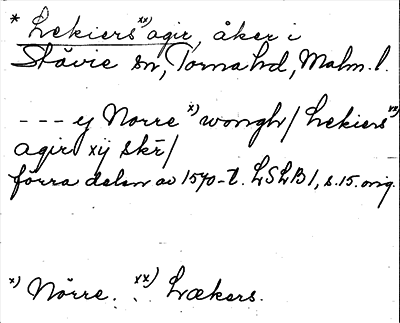 * Lekiers xx) agir, åker i
Stävie sn, Torna hd, Malm. l.
--- ej Norre x) wongh / Lekiers xx)
agir xij skr /
förra delen av 1570-t. LSLB 1, s. 15. orig.
x) Nörre. xx) Lækers.